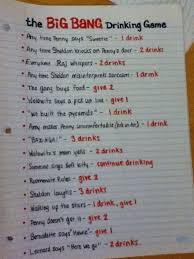 the BIG BANG Drinking Game
Any time Penny says "Sweetie" - 1 drink
Any time Sheldon knocks on Penny's door - 2 drinks
Everytime Raj whispers - 2 drinks
Any time Sheldon misinterprets sarcasm - 1 drink
The gang buys food - give 2
Wolowitz says a pick up line - give 1
"We built the pyramids" - 1 drink
Amy makes Penny uncomfortable - 1 drink
"BAZINGA!" - 3 drinks
Wolowitz's mom yells - 2 drinks
Someone sings soft kitty - continue drinking
Roommate Rules - give 2
Sheldon laughs - 3 drinks
Walking up the stairs - 1 drink, give 1
Penny doesn't get it - give 2
Bernadette says "Howie" - give 1
Leonard says "Here we go" - 2 drinks